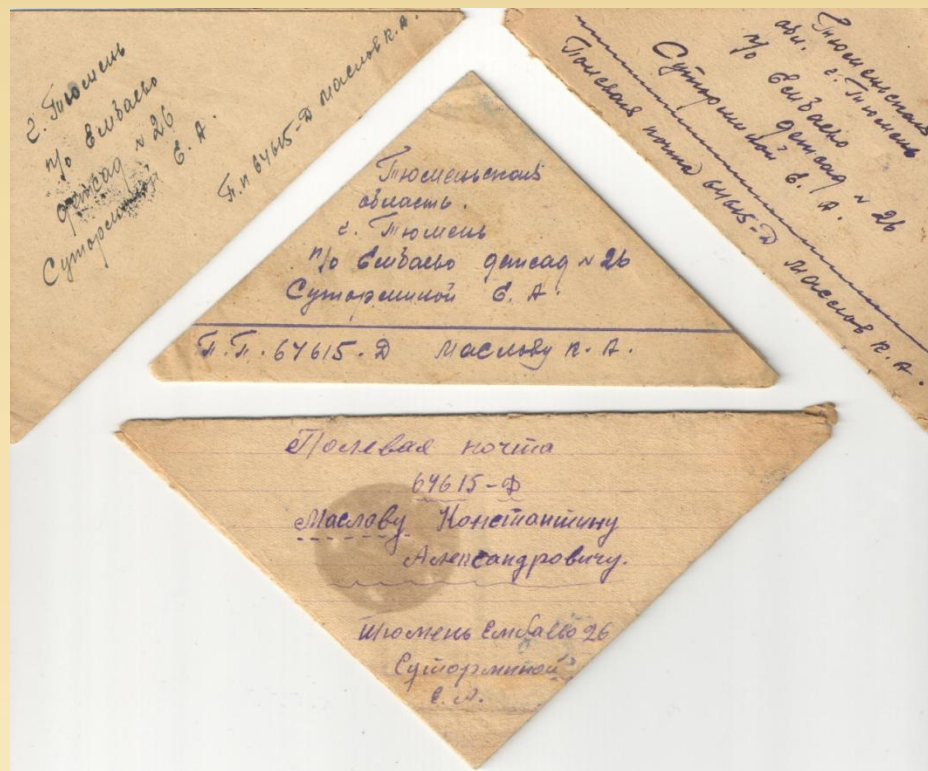 г. Тюмень
п/о Ембаево
детсад № 26
Суторминой Е. А.
П.п 64615-Д Маслов К.А.
Тюменьская
обл. г. Тюмень
п/о Ембаево
детсад № 26
Суторминой Е. А.
Полевая почта 64615-Д Маслов К. А.
Тюменьская
область.
г. Тюмень
п/о Ембаево детсад № 26
Суторминой Е. А.
П.П. 64615-Д Маслову К. А.
Полевая почта
64615-Ф
Маслову Константину
Александровичу.
Тюмень Ембаево 26
Суторминой
Е. А.